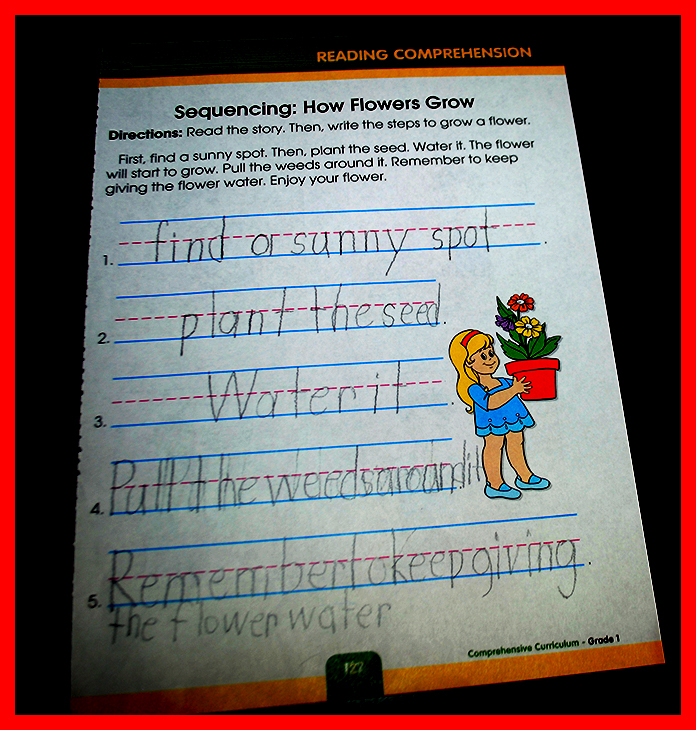 READING COMPREHENSION
Sequencing: How Flowers Grow
Directions: Read the story. Then, write the steps to grow a flower.
First, find a sunny spot. Then, plant the seed. Water it. The flower
will start to grow. Pull the weeds around it. Remember to keep
giving the flower water. Enjoy your flower.
1. find or sunny spot.
2. plant the seed.
3. Water it.
4. Pull the weeds around it
5. Remember to keep giving.
the flower water
Comprehensive Curriculum - Grade 1
127